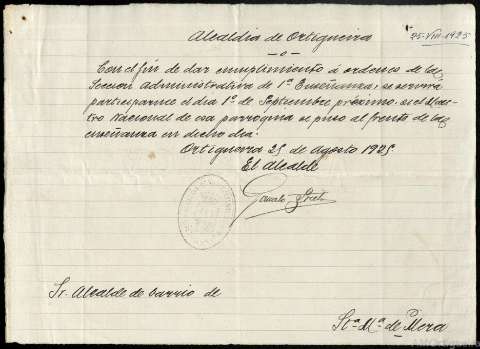 Alcaldia de Ortigueira
25-VIII-1925
Con el fin de dar cumplimiento á ordenes de la
Sección Administrativa de 1ª Enseñanza, se servirá
participarme el dia 1º de Septiembre próximo, si el Maes-
tro Nacional de esa parroquia se puso al frente de la
enseñanza en dicho dia.
Ortigueira 25 de agosto 1925.
El Alcalde
Sr. Alcalde de barrio de
Stª Mª de Mera